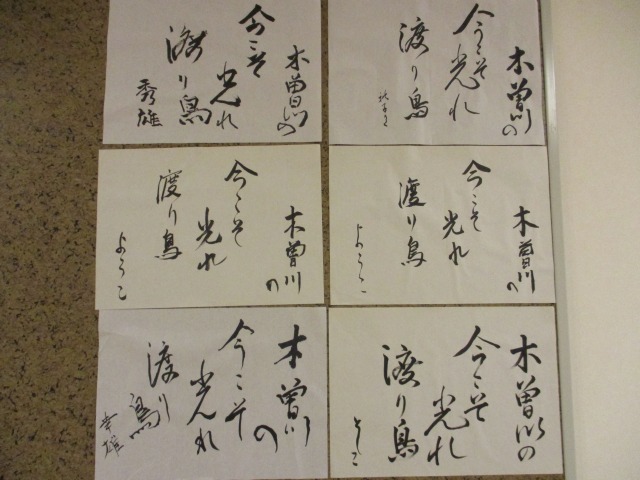 木曽川の
今こそ
光れ
渡り鳥
秀雄
木曽川の
今こそ
光れ
渡り鳥
木曽川の
今こそ
光れ
渡り鳥
ようこ
木曽川の
今こそ
光れ
渡り鳥
ようこ
木曽川の
今こそ
光れ
渡り鳥
幸雄
木曽川の
今こそ
光れ
渡り鳥
としこ